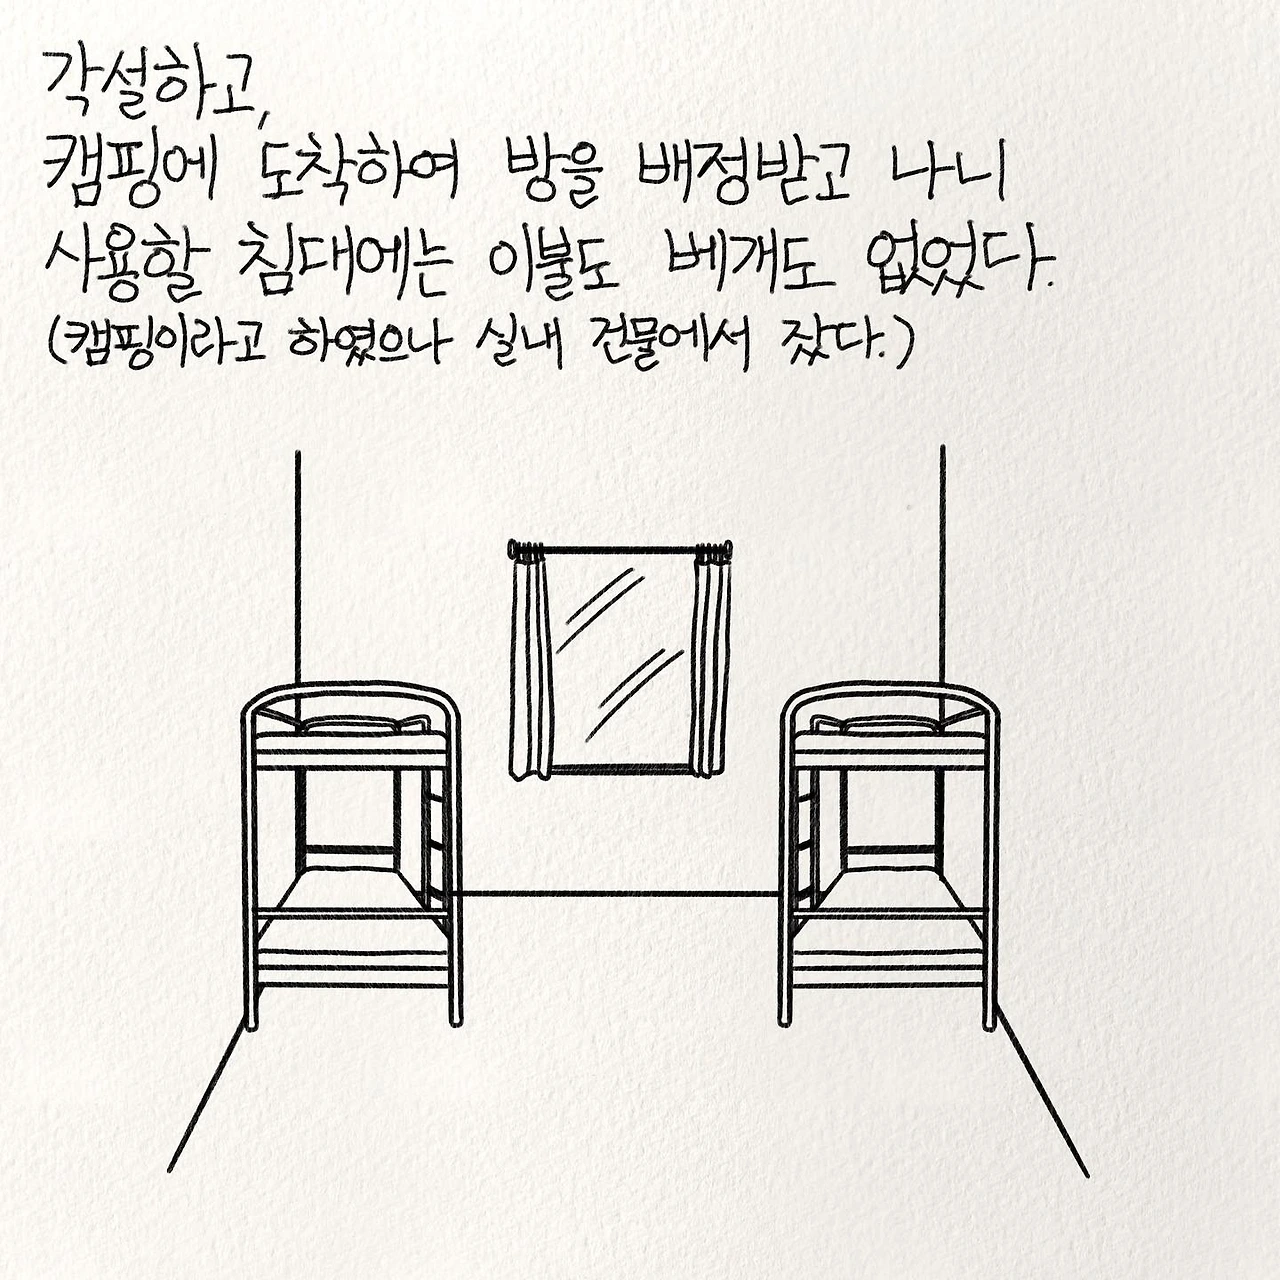 각설하고,
캠핑에 도착하여 방을 배정받고 나니
사용할 침대에는 이불도 베개도 없었다.
(캠핑이라고 하였으나 실내 건물에서 잤다.)